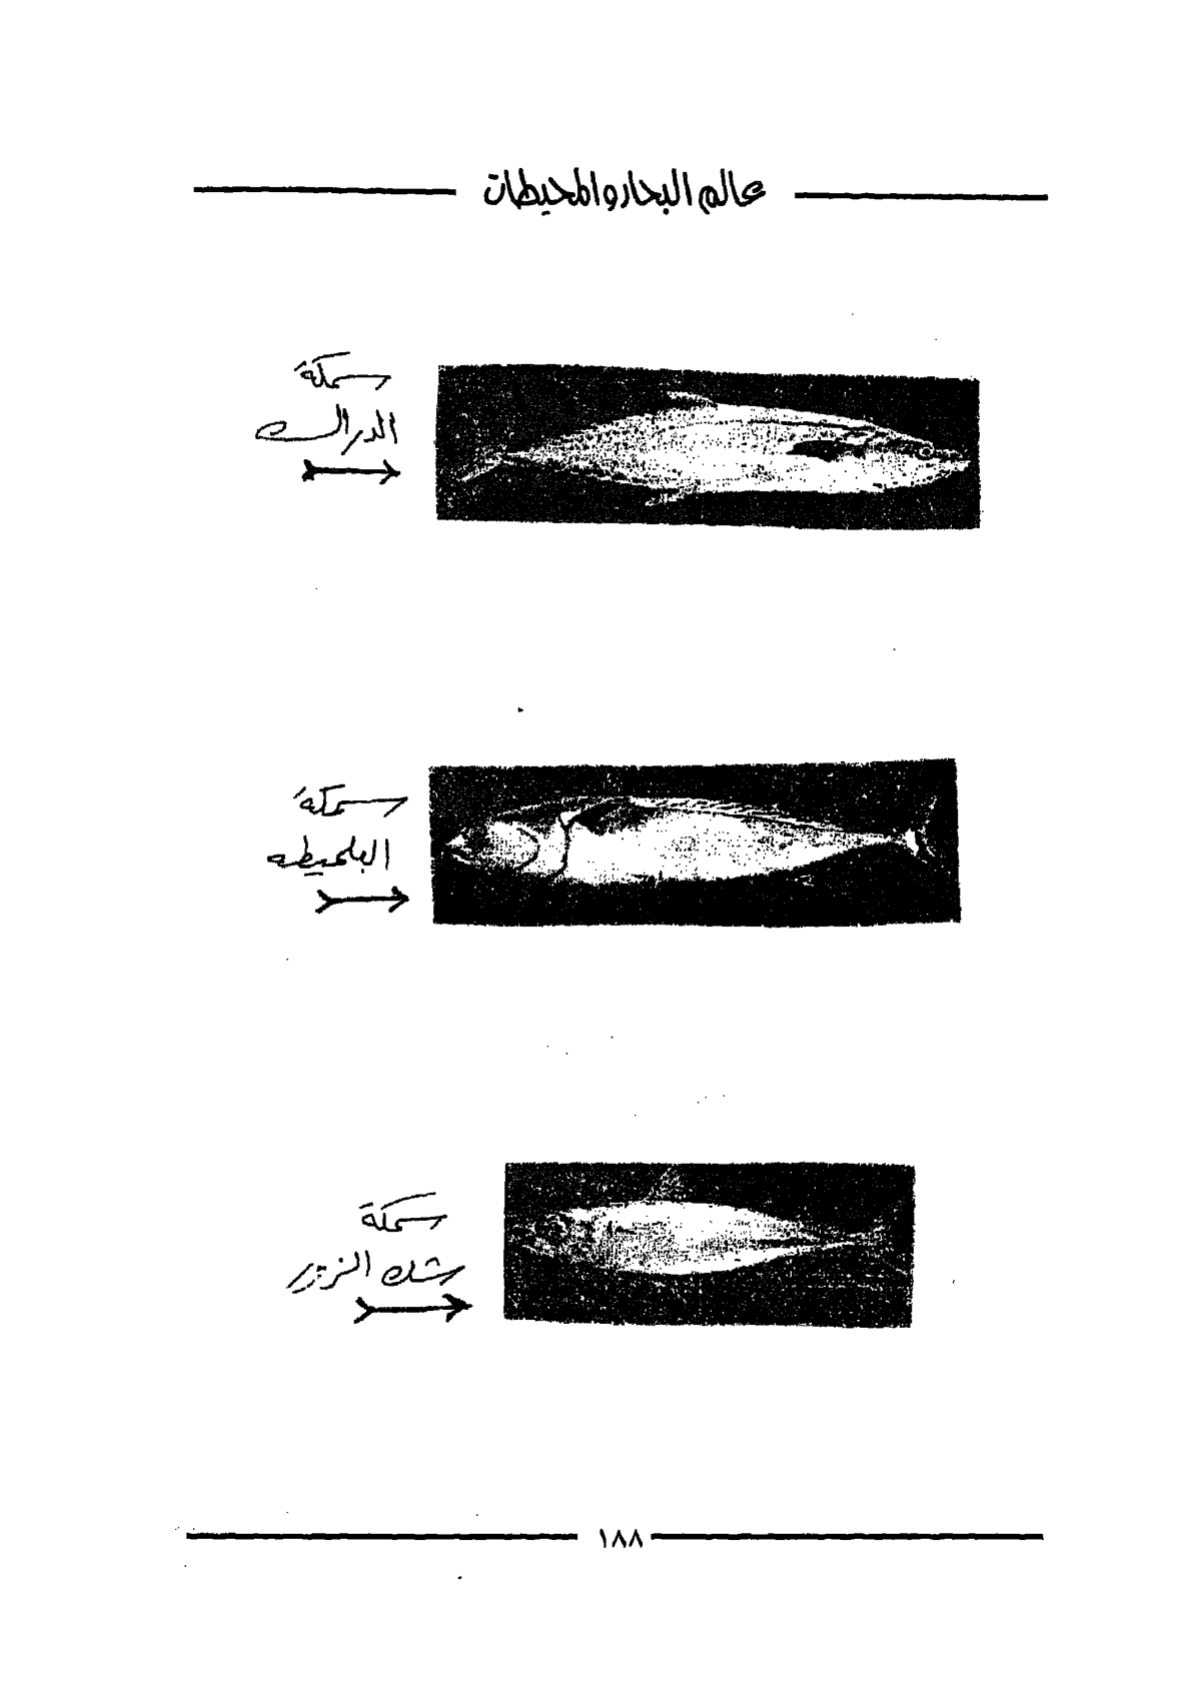 عالم البحار والمحيطات
سمكة
الدراك
سمكة
البلميطه
سمكة
شك الزور
١٨٨